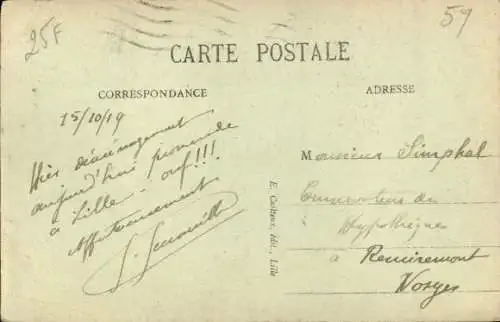 25F
59
CARTE POSTALE
CORRESPONDANCE
ADRESSE
15/10/19
Hier déménagement
aujourd'hui promenade
à Lille - ouf!!!
Affectueusement
Monsieur Simphal
Conservateur des
Hypothèques
à Remiremont
Vosges
Lille